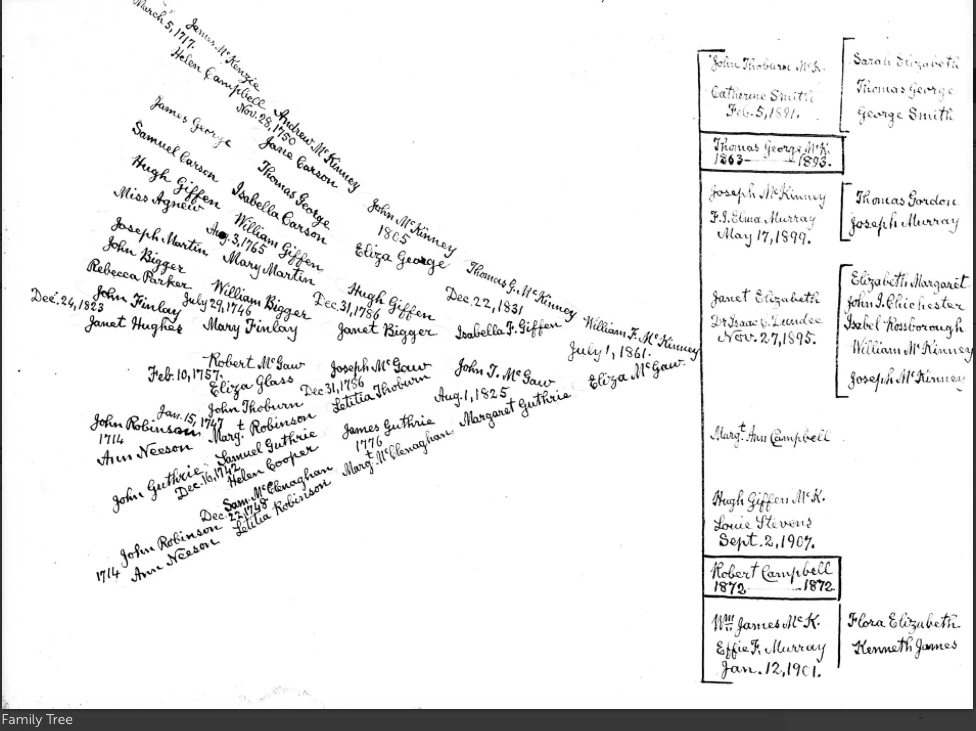 March 5, 1717.
James McKenzie
Helen Campbell
Nov. 28, 1750
Andrew McKinney
Jane Carson
James George
Samuel Carson
Thomas George
Isabella Carson
John McKinney
1805
Eliza George
Hugh Giffen
Miss Agnew
William Giffen
Aug. 3, 1765
Mary Martin
Joseph Martin
Thomas G. McKinney
Dec. 22, 1831
Isabella F. Giffen
Hugh Giffen
Dec. 31, 1786
Janet Bigger
John Bigger
Rebecca Parker
William Bigger
July 29, 1746
Mary Finlay
John Finlay
Dec. 24, 1823
Janet Hughes
William F. McKinney
July 1, 1861.
Eliza McGaw.
Robert McGaw
Feb. 10, 1757.
Eliza Glass
Joseph McGaw
Dec 31, 1786
Letitia Thoburn
John T. McGaw
Aug. 1, 1825
Margaret Guthrie
John Thoburn
Jan. 15, 1747
Margt. Robinson
John Robinson
1714
Ann Neeson
John Guthrie
Samuel Guthrie
Dec. 16, 1742
Helen Cooper
James Guthrie
1776
Margt. McClenaghan
Sam. McClenaghan
Dec. 22, 1748
Letitia Robinson
John Robinson
1714 Ann Neeson
John Thoburn McK.
Catherine Smith
Feb. 5, 1891.
Sarah Elizabeth
Thomas George
George Smith
Thomas George McK.
1863 1893.
Joseph McKinney
F.J. Elma Murray
May 17, 1899.
Thomas Gordon
Joseph Murray
Janet Elizabeth
Dr Isaac C. Dundee
Nov. 27, 1895.
Elizabeth Margaret
John I. Chichester
Isabel Rossborough
William McKinney
Joseph McKinney
Margt. Ann Campbell
Hugh Giffen McK.
Louie Stevens
Sept. 2, 1907.
Robert Campbell
1872 1872
Wm. James McK.
Effie F. Murray
Jan. 12, 1901.
Flora Elizabeth
Kenneth James
Family Tree